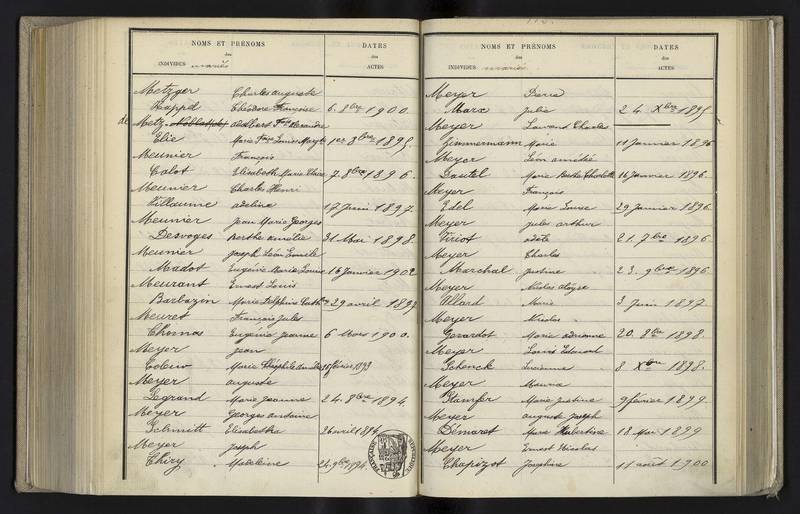 NOMS ET PRÉNOMS
des
INDIVIDUS mariés
DATES
des
ACTES
Metzger Charles auguste
Happd Théodore Françoise 6. 8bre 1900.
de Metz adalbert
Elie Marie 1er 8bre 1895.
Meunier François
Colot Elisabeth Marie 7. 8bre 1896.
Meunier Charles Henri
Villaume adeline 17 Juin 1897.
Meunier Jean Marie Georges
Desvoges Berthe amélie 31 Mai 1898.
Meunier Joseph Léon Emile
Madot Eugénie Marie Louise 16 Janvier 1902
Meurant Ernest Louis
Barbazin Marie Delphine 29 avril 1897
Meuret François Jules
Thomas Eugénie Jeanne 6 Mars 1900.
Meyer Jean
Marie Théophile février 1893
Meyer auguste
Legrand Marie Jeanne 24. 8bre 1894.
Meyer Georges antoine
Schmitt Elisabetha 26 avril 1894
Meyer Joseph
Thiry Madeleine 24. 9bre 1894.
NOMS ET PRÉNOMS
des
INDIVIDUS mariés
DATES
des
ACTES
Meyer Pierre
Marx Julie 24. Xbre 1895
Meyer Laurent Charles
Zimmermann Marie 11 Janvier 1896
Meyer Léon amédée
Gautel Marie Berthe Charlotte 16 Janvier 1896.
Meyer François
Edel Marie Louise 29 Janvier 1896.
Meyer Jules arthur
Tiriot adèle 21. 7bre 1896
Meyer Charles
Marchal Justine 23. 9bre 1896
Meyer Nicolas
Ullard Marie 3 Juin 1897.
Meyer Nicolas
Gerardot Marie adrienne 20. 8bre 1898.
Meyer Louis Edouard
Schenck Lucienne 8 Xbre 1898.
Meyer Maurice
Stamfer Marie Justine 9 février 1899.
Meyer auguste Joseph
Démaret Marie Hubertine 18 Mai 1899
Meyer Ernest Nicolas
Chapizot Joséphine 11 août 1900